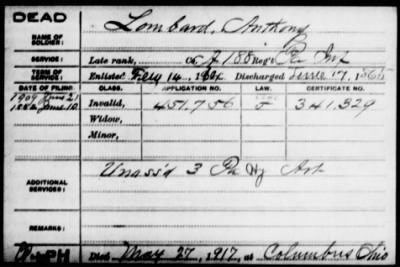 DEAD
NAME OF SOLDIER: Lombard, Anthony
SERVICE: Late rank, Co. A 188 Reg't Pa Inf
TERM OF SERVICE: Enlisted Feby 14, 1864 Discharged June 17, 1865
DATE OF FILING. CLASS. APPLICATION NO. LAW. CERTIFICATE NO.
1882 June 10 Invalid, 451,756 341,329
Widow,
Minor,
ADDITIONAL SERVICES: Unas'd 3 Pa Hy Art
REMARKS:
Died May 27, 1917, at Columbus Ohio